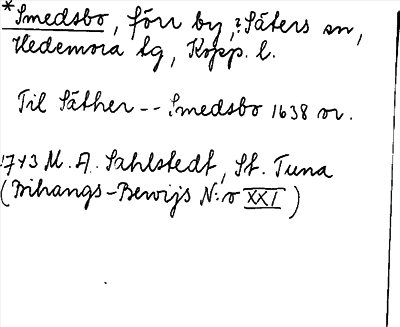 *Smedsbo, förr by, i Säters sn,
Hedemora tg, Kopp. l.
Til Säther -- Smedsbo 1638 or.
1743 M. A. Sahlstedt, St. Tuna
(Bihangs-Bewijs N:o XXI)